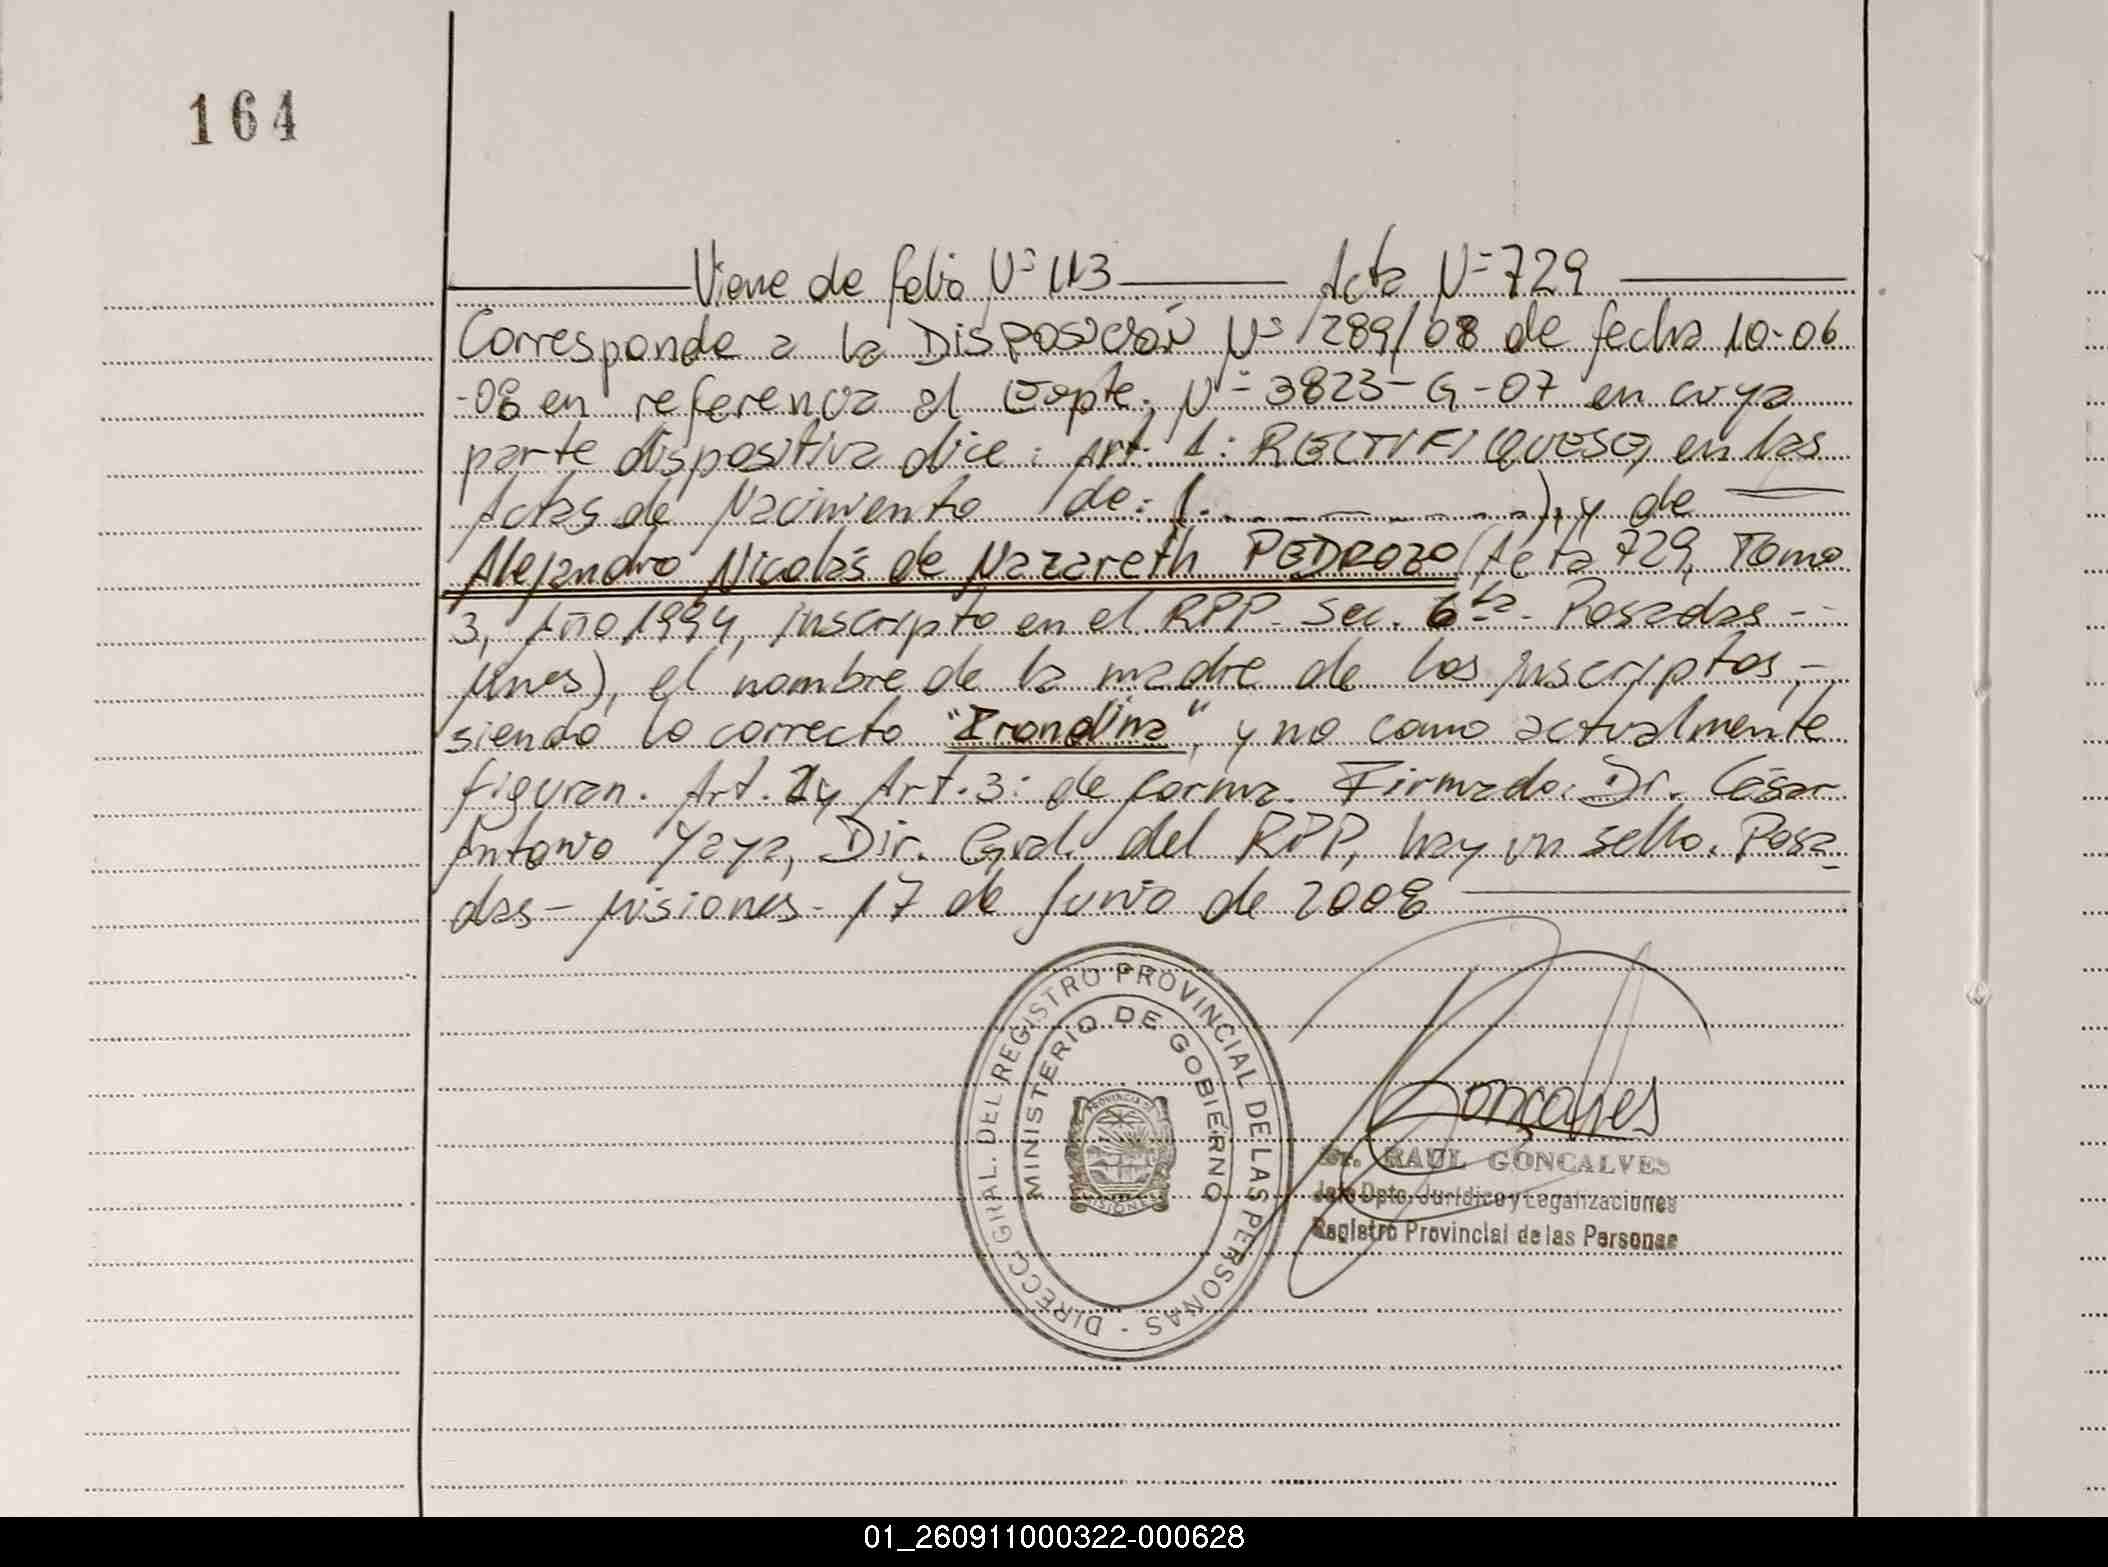 164
Viene de folio Nº 113 Acta Nº 729
Corresponde a la DISPOSICIÓN Nº 1289/08 de fecha 10-06
-08 en referencia al Expte. Nº 3823-G-07 en cuya
parte dispositiva dice: Art. 1: RECTIFIQUESE, en las
Actas de Nacimiento de: (............), y de
Alejandro Nicolás de Nazareth PEDROZO (Acta 729, Tomo
3, Año 1994, inscripto en el RPP. Sec. 6ta - Posadas -
Mnes), el nombre de la madre de los inscriptos, -
siendo lo correcto "Irondina", y no como actualmente
figuran. Art. 2 y Art. 3: de forma. Firmado: Dr. César
Antonio Yaya, Dir. Gral. del RPP, hay un sello. Posa-
das - Misiones - 17 de Junio de 2008
DIRECC. GRAL. DEL REGISTRO PROVINCIAL DE LAS PERSONAS -
MINISTERIO DE GOBIERNO
PROVINCIA DE
MISIONES
Goncalves
Dr. RAUL GONCALVES
Jefe Dpto. Jurídico y Legalizaciones
Registro Provincial de las Personas
01_260911000322-000628